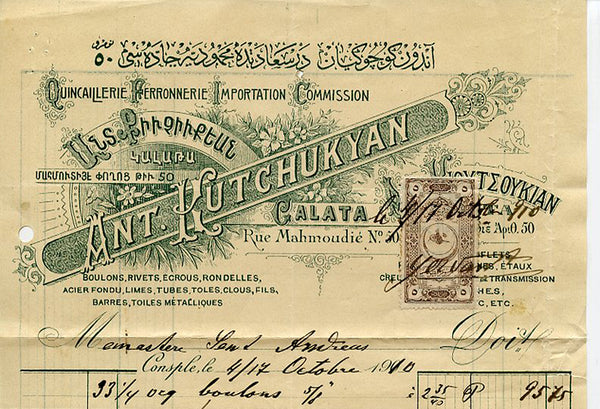 آندون كوچوكيان درسعادتده محموديه جاده سى نومرو ٥٠
QUINCAILLERIE FERRONNERIE IMPORTATION COMMISSION
ԱՆՏ. ՔԻՒՉԻՒՔԵԱՆ
ԿԱԼԱԹԱ
ՄԱՀՄՈՒՏԻՅԷ ՓՈՂՈՑ ԹԻՒ 50
ANT. KUTCHUKYAN
ΚΙΟΥΤΣΟΥΚΙΑΝ
GALATA
Rue Mahmoudié No. 50
Αρθ. 50
BOULONS, RIVETS, ÉCROUS, RONDELLES,
ACIER FONDU, LIMES, TUBES, TOLES, CLOUS, FILS,
BARRES, TOILES MÉTALLIQUES
ÉTAUX
TRANSMISSION
C, ETC.
le 4/17 Octobre 910
Monastere Sant Andreas Doit
Consple, le 4/17 Octobre 1910
33 1/4 ocq boulons 5/8" à 2 35/40 P 95 75